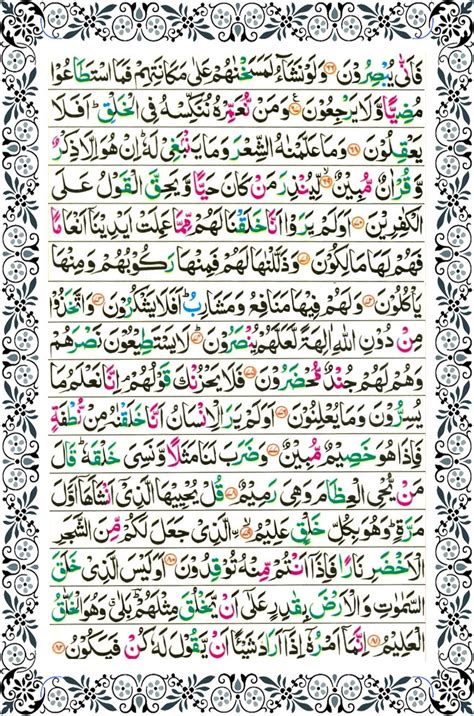 فَاَنّٰى يُبْصِرُوْنَ ﴿۶۶﴾ وَلَوْ نَشَآءُ لَمَسَخْنٰهُمْ عَلٰى مَكَانَتِهِمْ فَمَا اسْتَطَاعُوْا
مُضِيًّا وَّلَا يَرْجِعُوْنَ ﴿۶۷﴾ وَمَنْ نُّعَمِّرْهُ نُنَكِّسْهُ فِى الْخَلْقِ ؕ اَفَلَا
يَعْقِلُوْنَ ﴿۶۸﴾ وَمَا عَلَّمْنٰهُ الشِّعْرَ وَمَا يَنْۢبَغِىْ لَهٗ ؕ اِنْ هُوَ اِلَّا ذِكْرٌ
وَّقُرْاٰنٌ مُّبِيْنٌ ﴿۶۹﴾ لِّيُنْذِرَ مَنْ كَانَ حَيًّا وَّيَحِقَّ الْقَوْلُ عَلَى
الْكٰفِرِيْنَ ﴿۷۰﴾ اَوَلَمْ يَرَوْا اَنَّا خَلَقْنَا لَهُمْ مِّمَّا عَمِلَتْ اَيْدِيْنَاۤ اَنْعَامًا
فَهُمْ لَهَا مٰلِكُوْنَ ﴿۷۱﴾ وَذَلَّلْنٰهَا لَهُمْ فَمِنْهَا رَكُوْبُهُمْ وَمِنْهَا
يَاْكُلُوْنَ ﴿۷۲﴾ وَلَهُمْ فِيْهَا مَنَافِعُ وَمَشَارِبُ ؕ اَفَلَا يَشْكُرُوْنَ ﴿۷۳﴾ وَاتَّخَذُوْا
مِنْ دُوْنِ اللّٰهِ اٰلِهَةً لَّعَلَّهُمْ يُنْصَرُوْنَ ﴿۷۴﴾ لَا يَسْتَطِيْعُوْنَ نَصْرَهُمْ
وَهُمْ لَهُمْ جُنْدٌ مُّحْضَرُوْنَ ﴿۷۵﴾ فَلَا يَحْزُنْكَ قَوْلُهُمْ ۘ اِنَّا نَعْلَمُ مَا
يُسِرُّوْنَ وَمَا يُعْلِنُوْنَ ﴿۷۶﴾ اَوَلَمْ يَرَ الْاِنْسَانُ اَنَّا خَلَقْنٰهُ مِنْ نُّطْفَةٍ
فَاِذَا هُوَ خَصِيْمٌ مُّبِيْنٌ ﴿۷۷﴾ وَضَرَبَ لَنَا مَثَلًا وَّنَسِىَ خَلْقَهٗ ؕ قَالَ
مَنْ يُّحْىِ الْعِظَامَ وَهِىَ رَمِيْمٌ ﴿۷۸﴾ قُلْ يُحْيِيْهَا الَّذِىْۤ اَنْشَاَهَاۤ اَوَّلَ
مَرَّةٍ ؕ وَهُوَ بِكُلِّ خَلْقٍ عَلِيْمُ ﴿۷۹﴾ الَّذِىْ جَعَلَ لَكُمْ مِّنَ الشَّجَرِ
الْاَخْضَرِ نَارًا فَاِذَاۤ اَنْتُمْ مِّنْهُ تُوْقِدُوْنَ ﴿۸۰﴾ اَوَلَيْسَ الَّذِىْ خَلَقَ
السَّمٰوٰتِ وَالْاَرْضَ بِقٰدِرٍ عَلٰۤى اَنْ يَّخْلُقَ مِثْلَهُمْ ؔ بَلٰى وَهُوَ الْخَلّٰقُ
الْعَلِيْمُ ﴿۸۱﴾ اِنَّمَاۤ اَمْرُهٗۤ اِذَاۤ اَرَادَ شَيْئًا اَنْ يَّقُوْلَ لَهٗ كُنْ فَيَكُوْنُ ﴿۸۲﴾